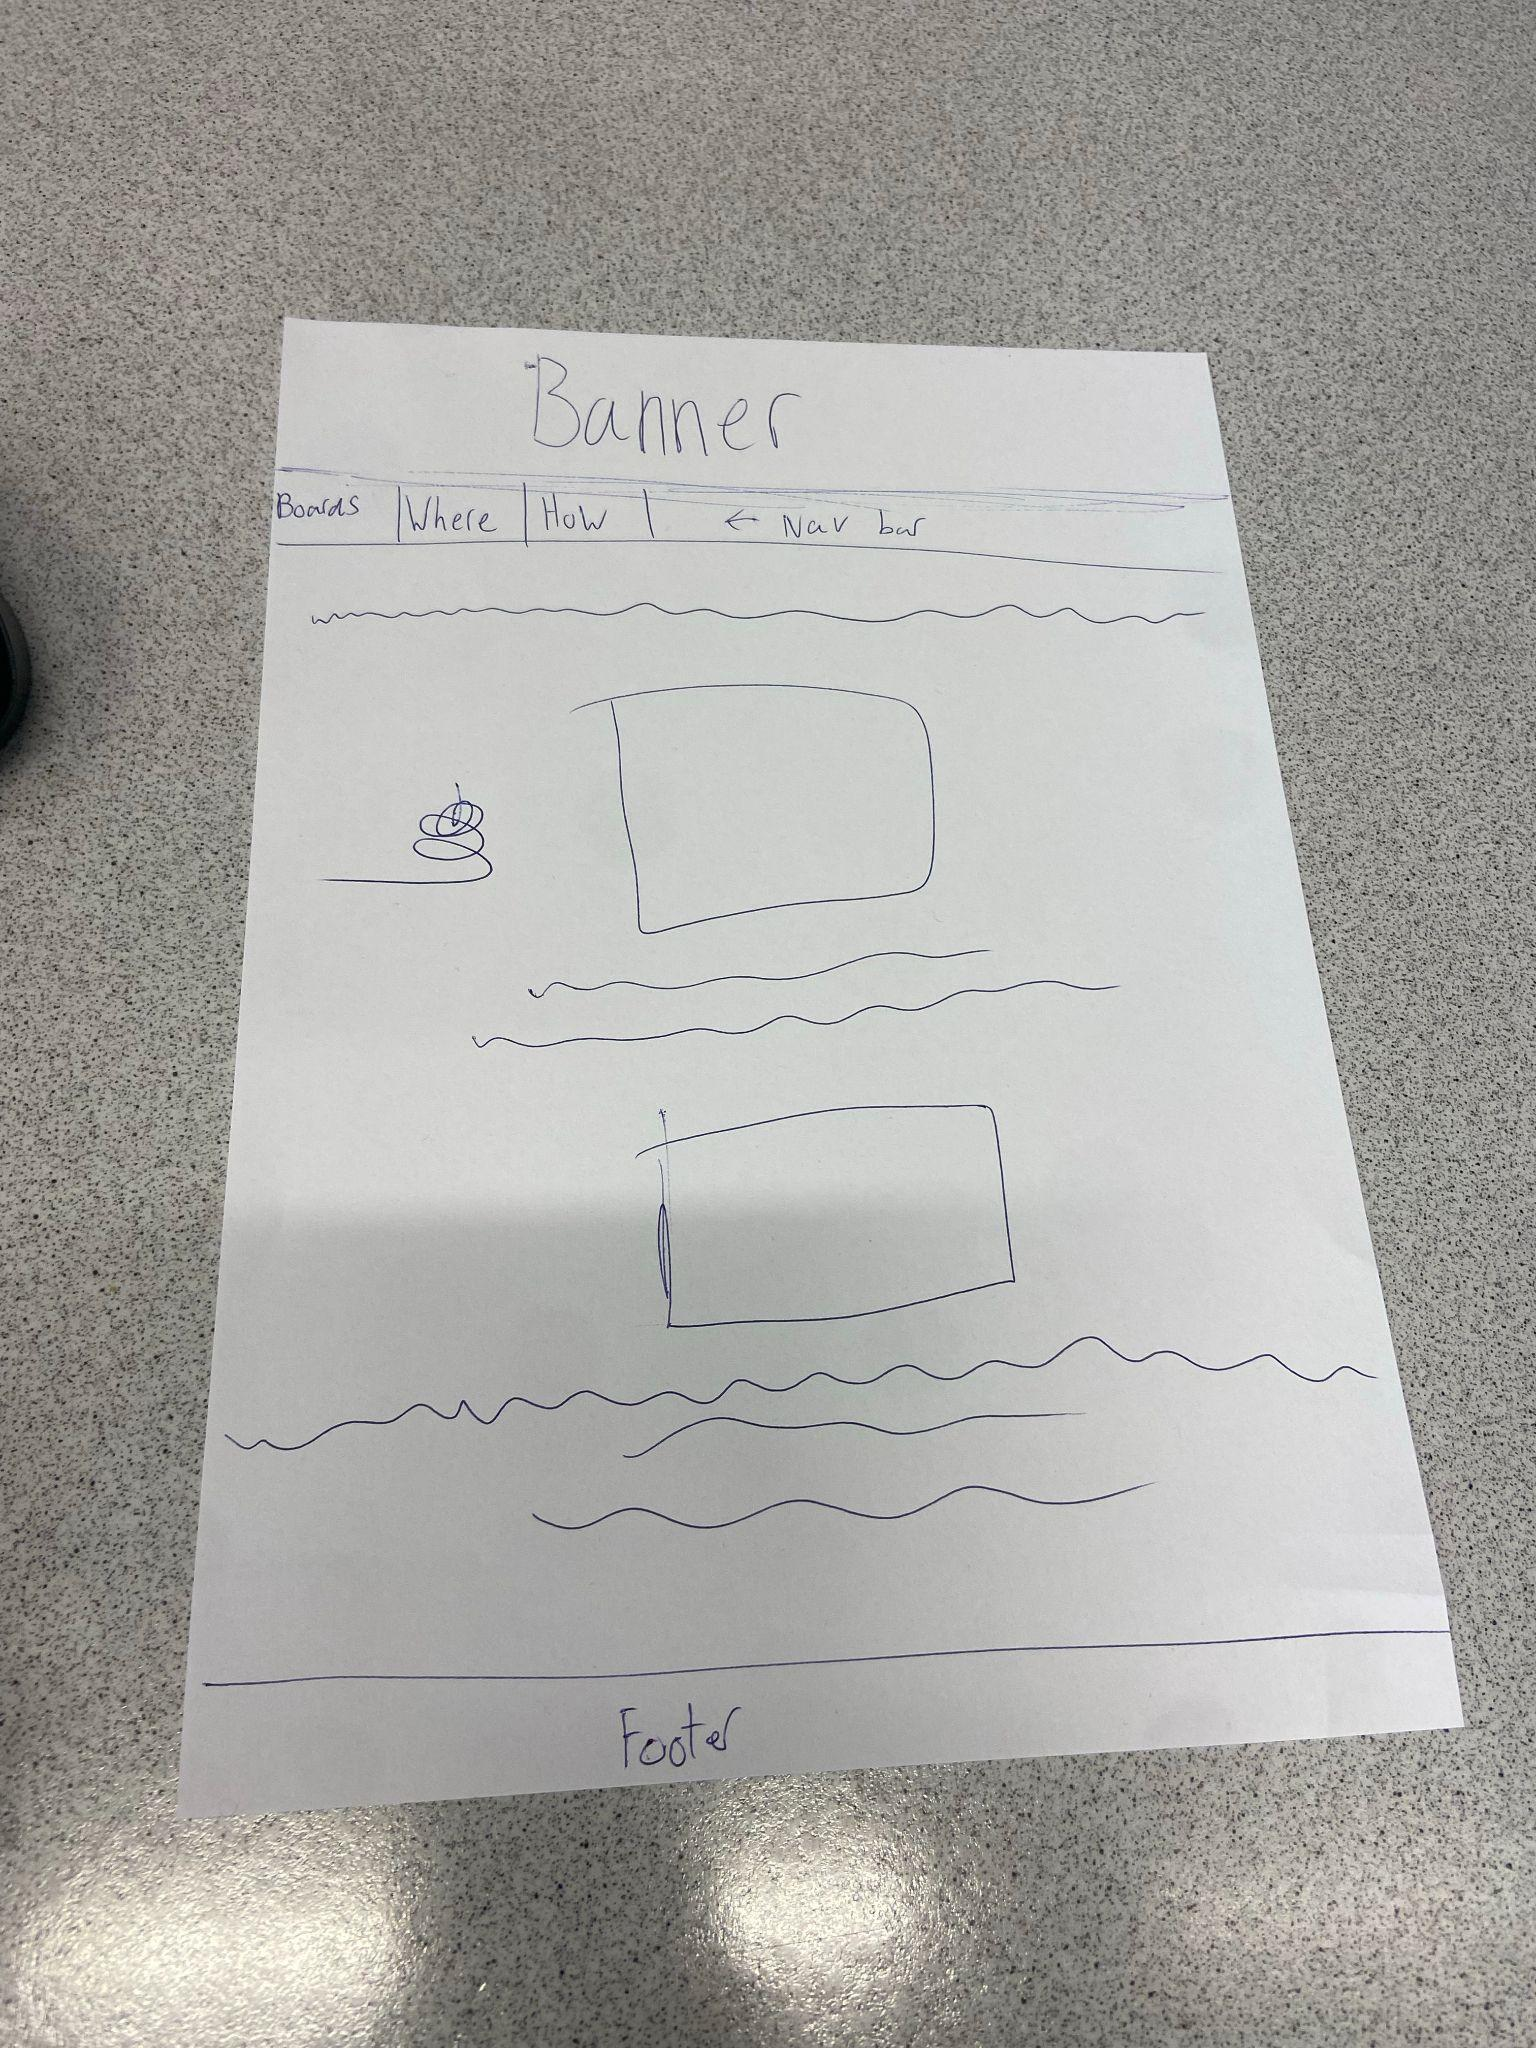 Banner
Boards Where How ← Nav bar
Footer